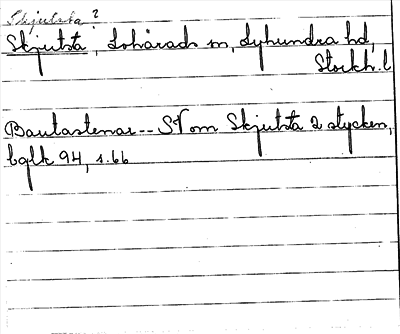 Skjutsta?
Skjutsta, Lohärads sn, Lyhundra hd,
Stockh. l
Bautastenar -- SV om Skjutsta 2 stycken,
bglk 94, s. 66